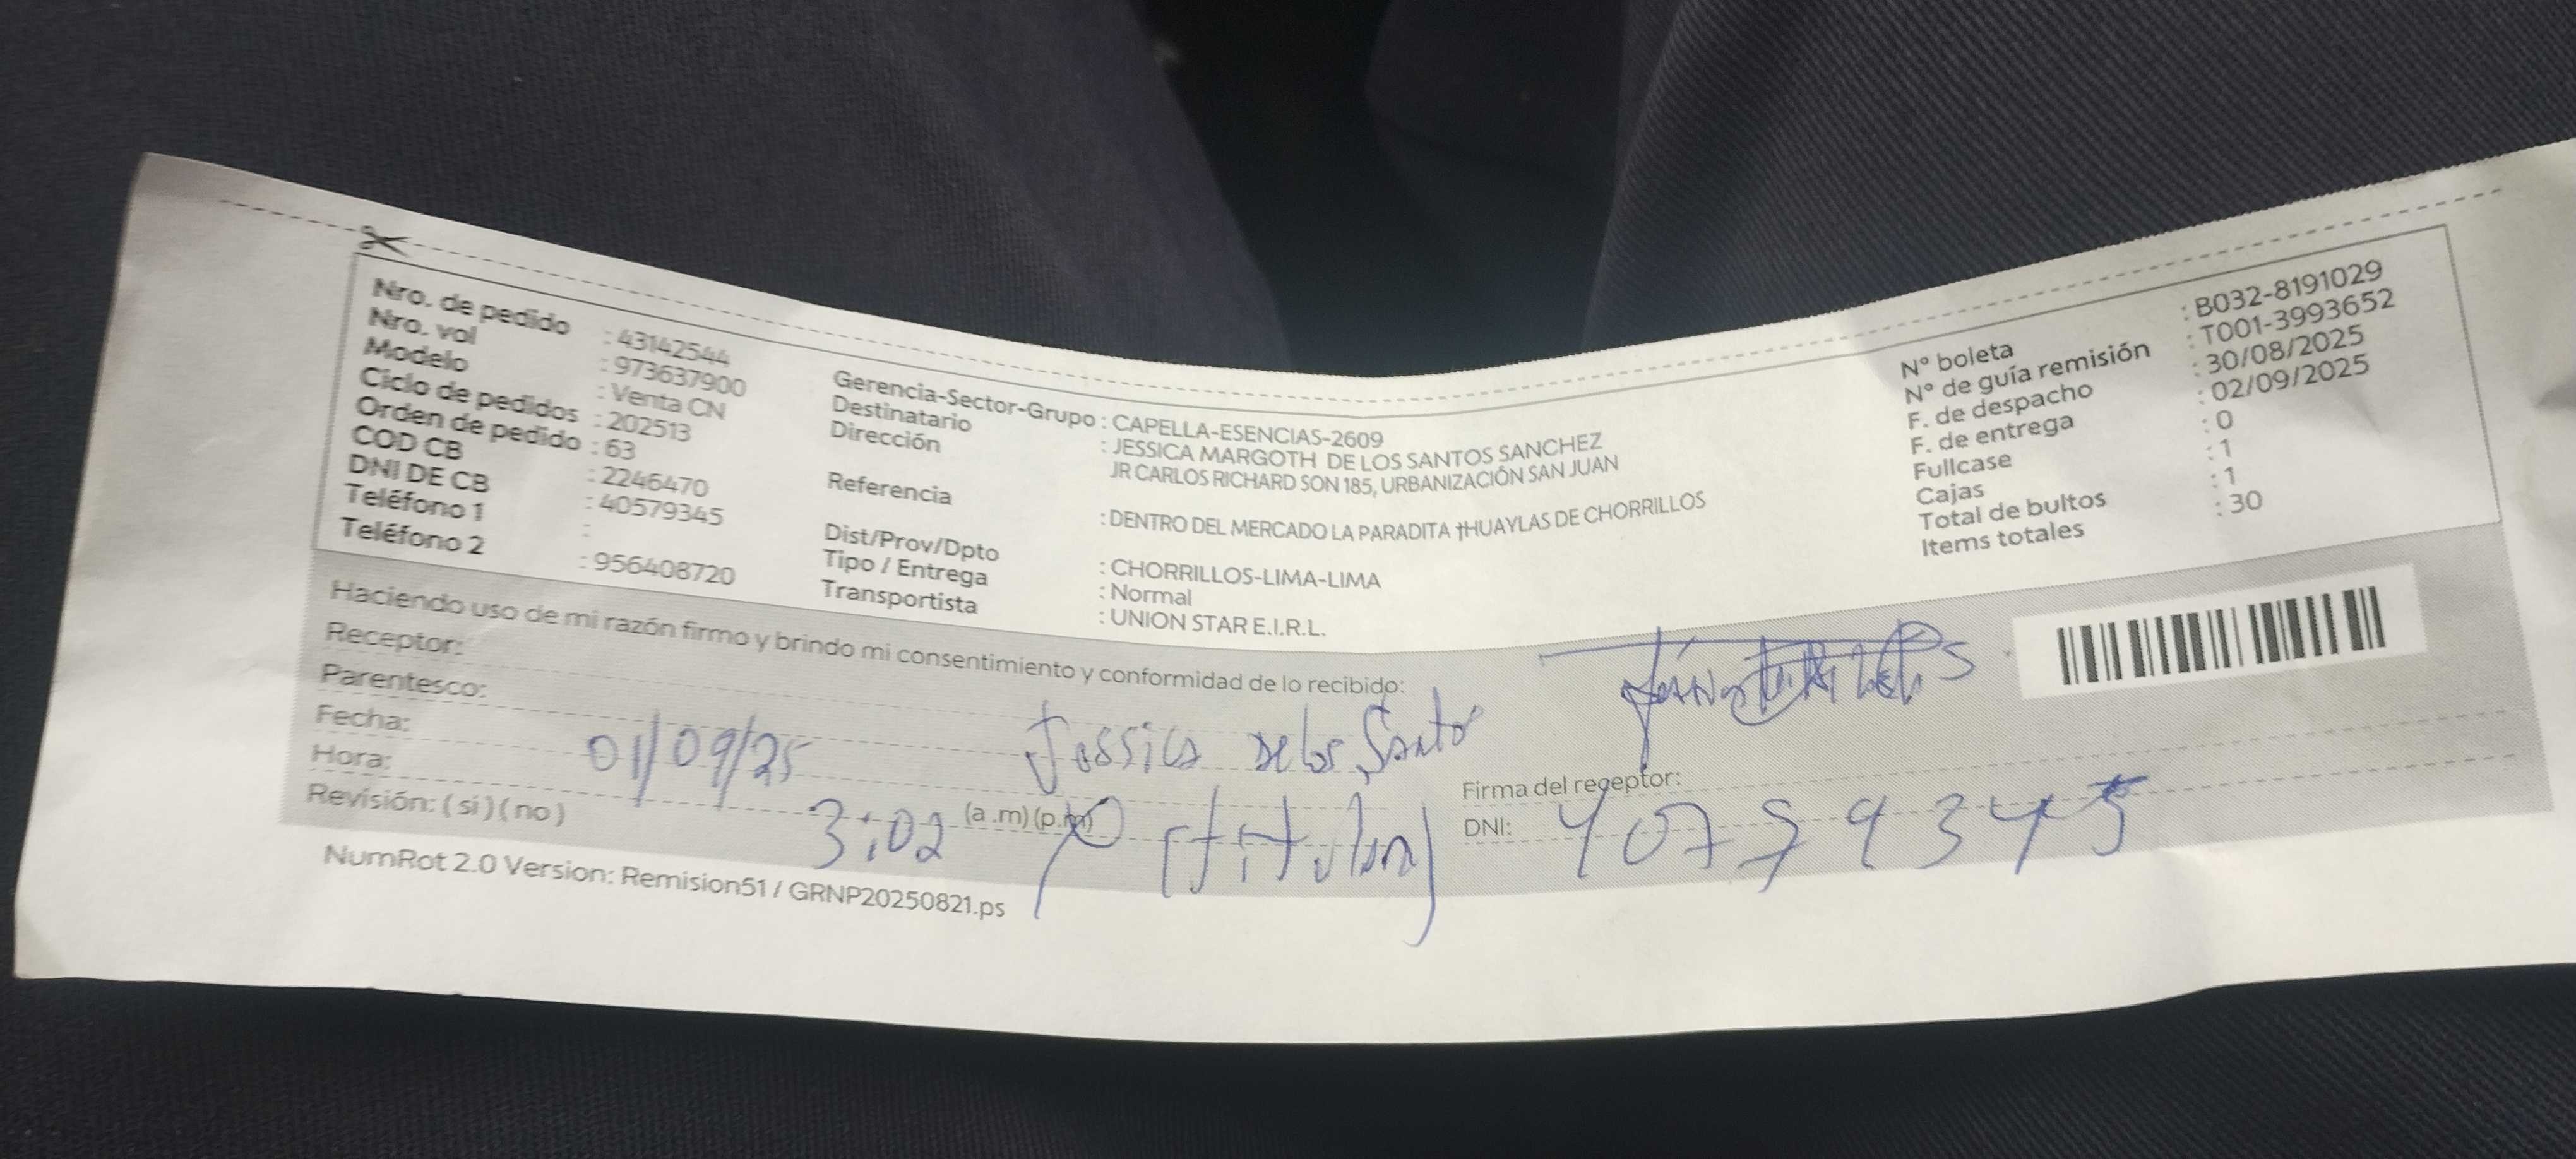 Nro. de pedido : 43142544
Nro. vol : 973637900
Modelo : Venta CN
Ciclo de pedidos : 202513
Orden de pedido : 63
COD CB : 2246470
DNI DE CB : 40579345
Teléfono 1 :
Teléfono 2 : 956408720
Gerencia-Sector-Grupo : CAPELLA-ESENCIAS-2609
Destinatario : JESSICA MARGOTH DE LOS SANTOS SANCHEZ
Dirección JR CARLOS RICHARD SON 185, URBANIZACIÓN SAN JUAN
Referencia : DENTRO DEL MERCADO LA PARADITA †HUAYLAS DE CHORRILLOS
Dist/Prov/Dpto : CHORRILLOS-LIMA-LIMA
Tipo / Entrega : Normal
Transportista : UNION STAR E.I.R.L.
N° boleta : B032-8191029
N° de guía remisión : T001-3993652
F. de despacho : 30/08/2025
F. de entrega : 02/09/2025
Fullcase : 0
Cajas : 1
Total de bultos : 1
Items totales : 30
Haciendo uso de mi razón firmo y brindo mi consentimiento y conformidad de lo recibido:
Receptor: Jessica De los Santo
Parentesco: (titular)
Fecha: 01/09/25
Hora: 3:02 (a .m) (p.m)
Revisión: ( si ) ( no )
Firma del receptor:
DNI: 40779345
NumRot 2.0 Version: Remision51 / GRNP20250821.ps